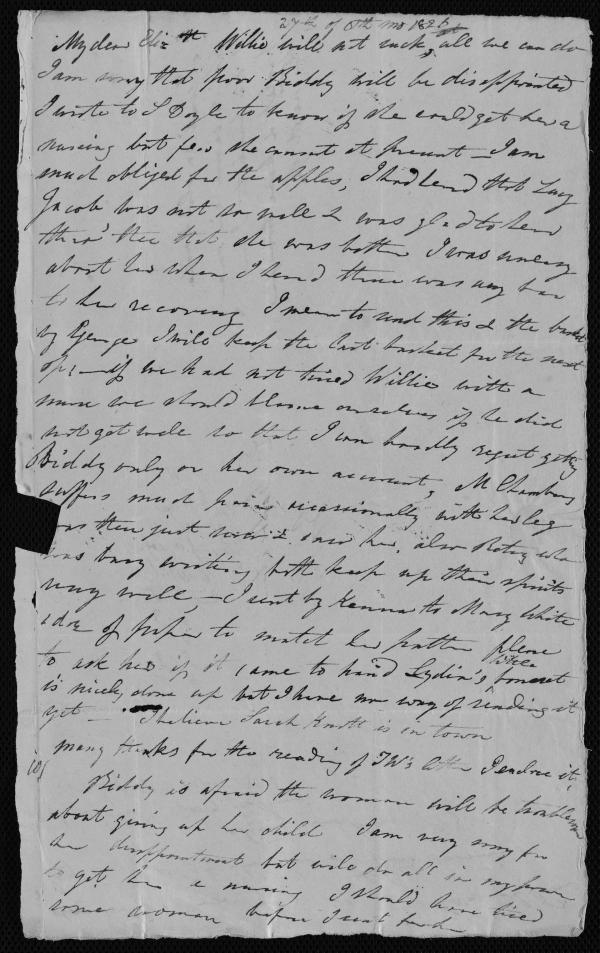 27th of 8th mo 1826
My dear Eliz th Willie will not suck, all we can do
I am sorry that poor Biddy will be disappointed
I wrote to S Doyle to know if she could get her a
nursing but fear she cannot at present — I am
much obliged for the apples, I had heard that Lucy
Jacob was not so well & was glad to hear
thro' thee that she was better I was uneasy
about her when I heard there was any bar
to her recovery I mean to send this & the basket
by George I will keep the last basket for the next
op: — if we had not tried Willie with a
nurse we should blame ourselves if he did
not get well so that I can hardly regret getting
Biddy only on her own account, M Chambers
suffers much pain occasionally with her leg
was then just now & saw her, also Betsy who
was busy writing both keep up their spirits
very well, — I sent by Kenna to Mary White
a doz of paper to match her pattern please
to ask her if it came to hand Lydia's white bonnet
is nicely done up but I have no way of sending it
yet — I believe Sarah Knott is in town
many thanks for the reading of TW's letter I enclose it,
Biddy is afraid the woman will be troublesome
about giving up her child I am very sorry for
her disappointment but will do all in my power
to get her a nursing I should have tried
some woman before I sent for her